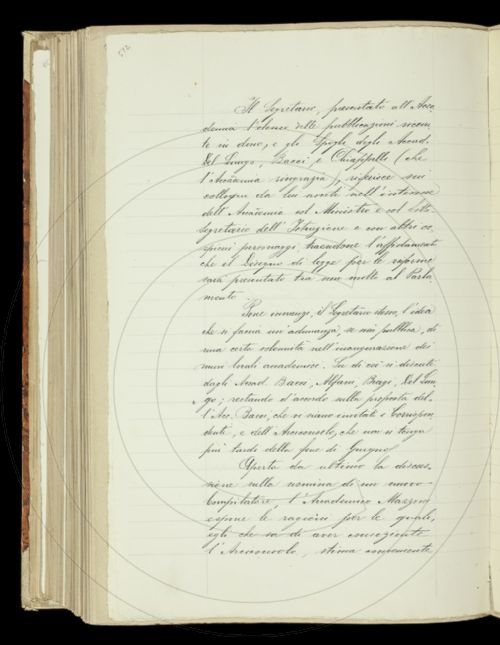 572
Il Segretario, presentato all'Acca-
demia l'elenco delle pubblicazioni ricevu-
te in dono, e gli Spogli degli Accad.
Del Lungo, Bacci e Chiappelli (che
l'Accademia ringrazia), riferisce sui
colloqui da lui avuti nell'interesse
dell'Accademia col Ministro e col Sotto-
segretario dell'Istruzione e con altri co-
spicui personaggi traendone l'affidamento
che il Disegno di legge per le riforme
sarà presentato tra non molto al Parla-
mento.
Pone innanzi, il Segretario stesso, l'idea
che si faccia un'adunanza, se mai pubblica, di
una certa solennità nell'inaugurazione dei
nuovi locali accademici. Su di ciò si discute
dagli Accad. Bacci, Alfani, Biagi, Del Lun-
go; restando d'accordo sulla proposta del-
l'Acc. Bacci, che vi siano invitati i Corrispon-
denti, e dell'Arciconsolo, che non si tenga
più tardi della fine di Giugno.
Aperta da ultimo la discus-
sione sulla nomina di un nuovo
Compilatore, l'Accademico Mazzoni
espone le ragioni per le quali,
egli che sa di aver consenziente
l'Arciconsolo, stima conveniente